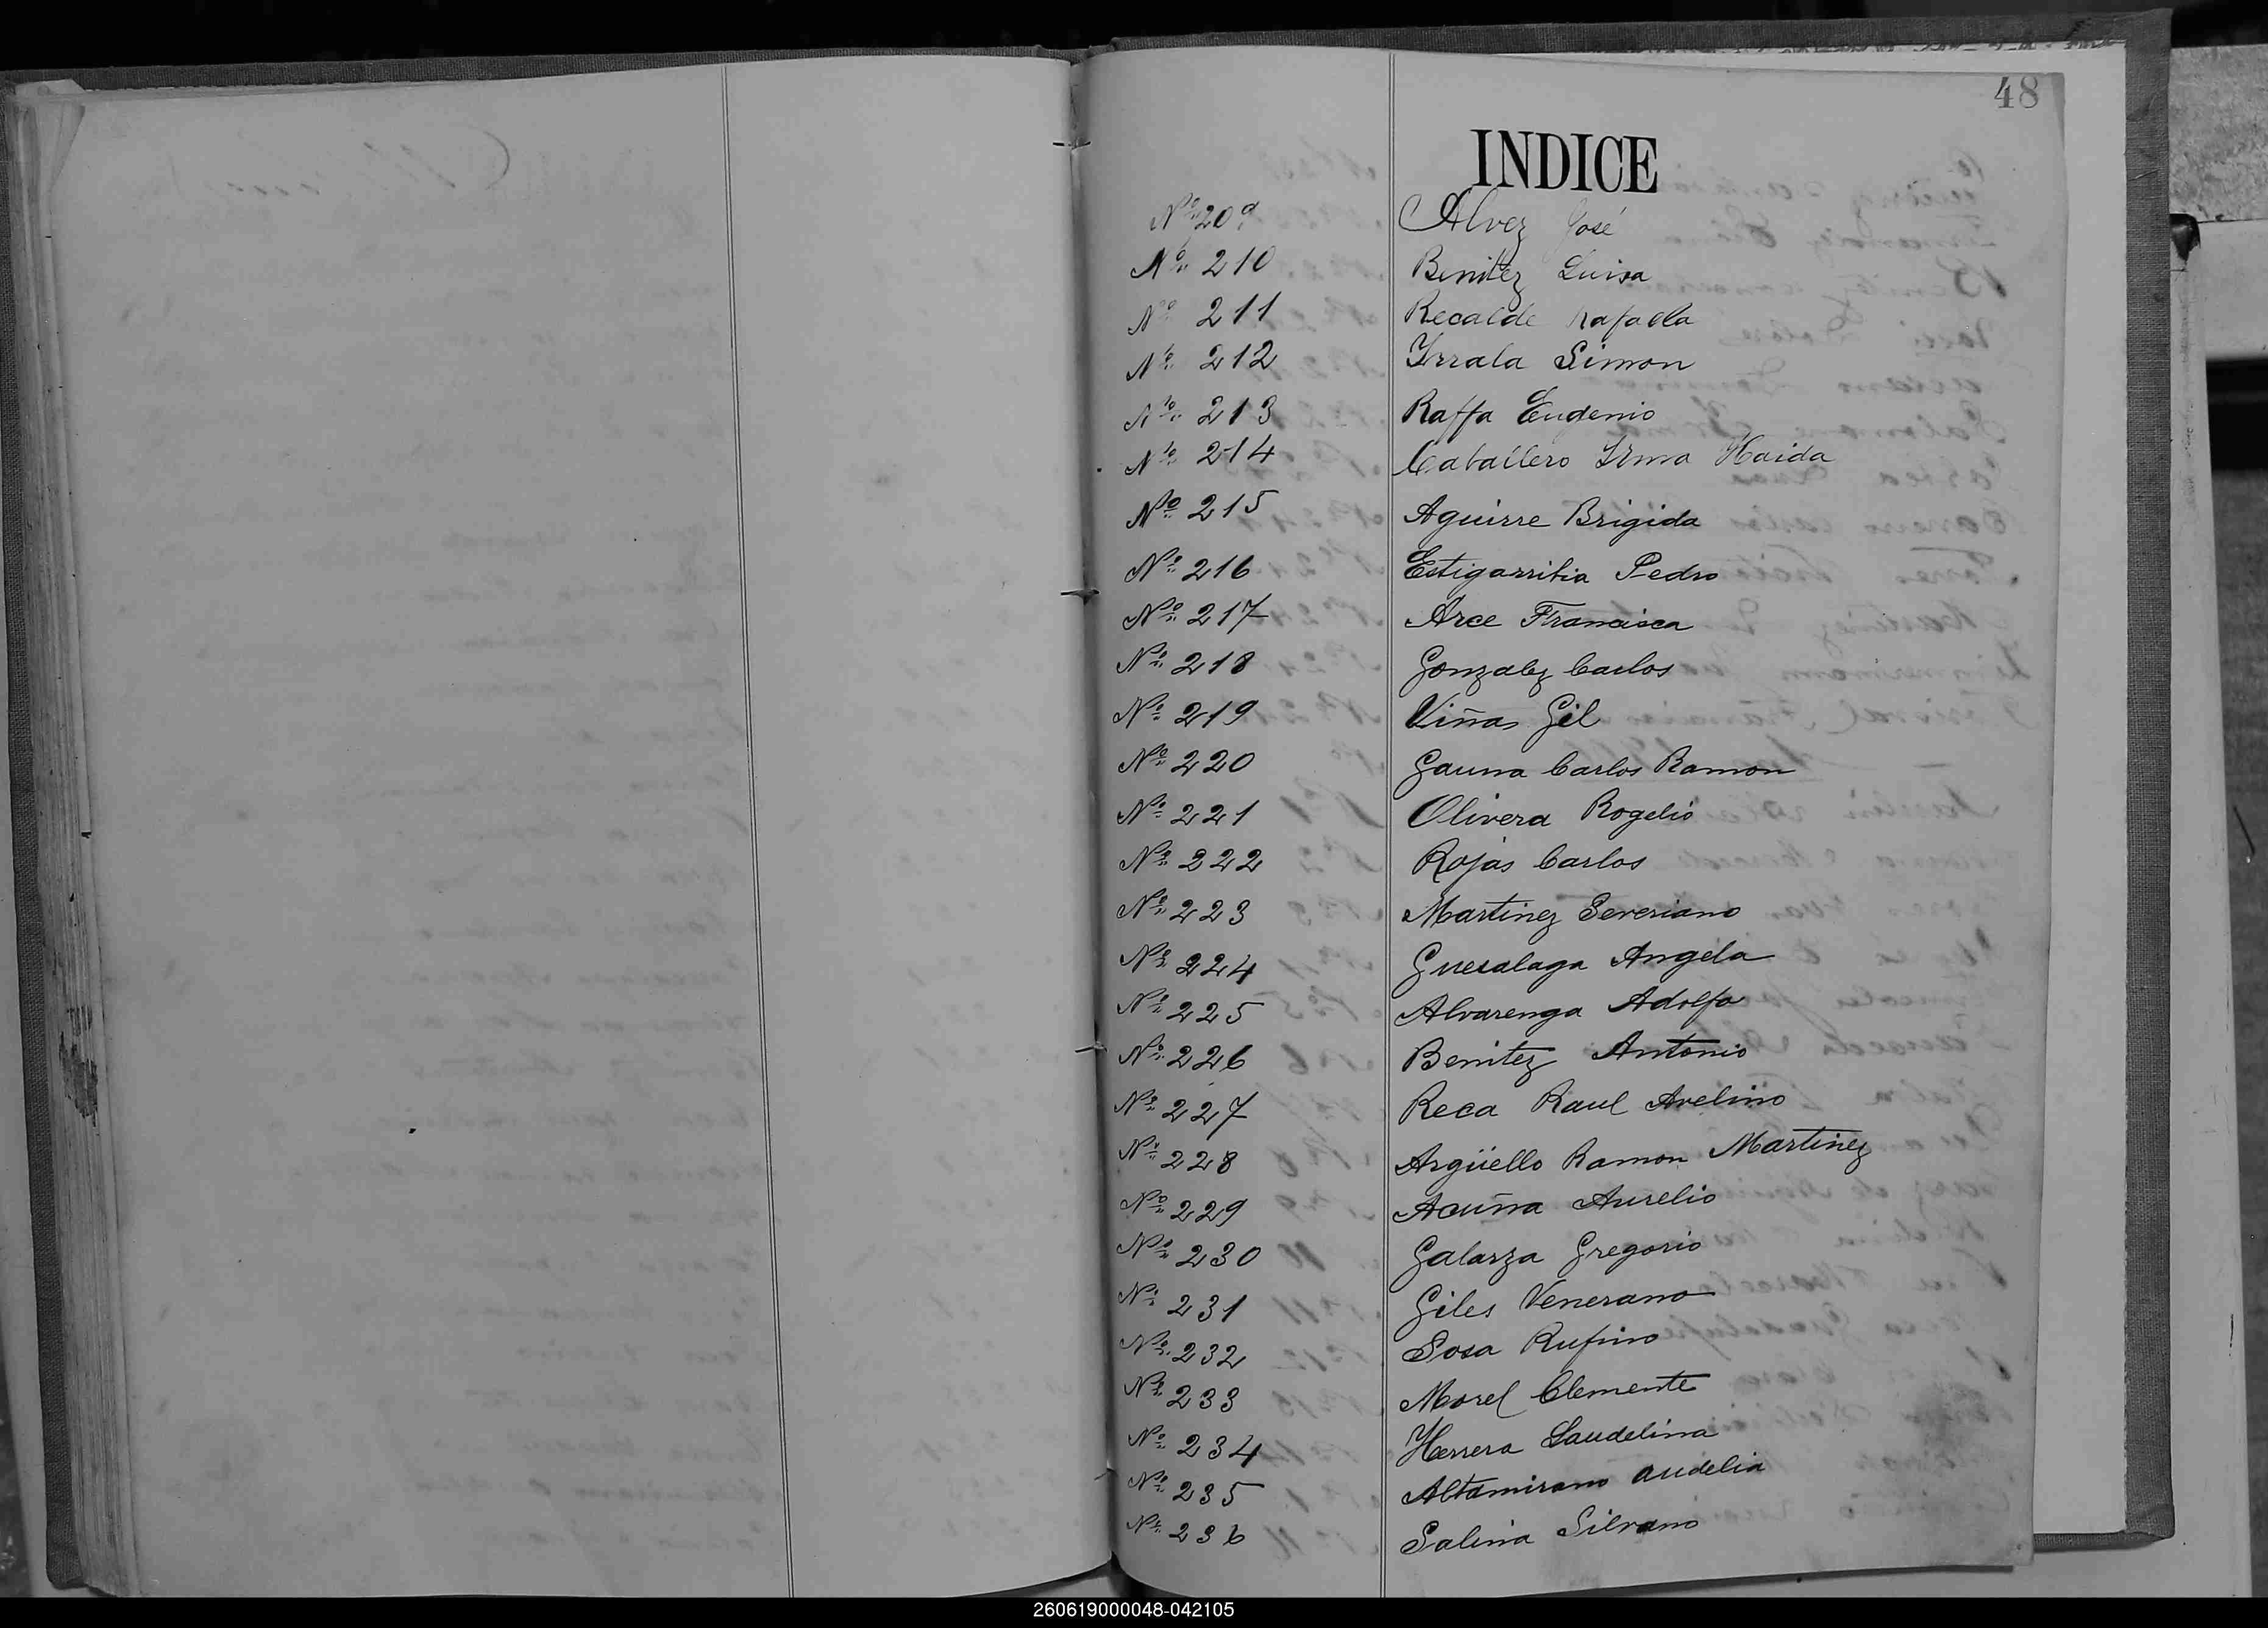 48
INDICE
Nº 209 Alvez José
Nº 210 Benitez Luisa
Nº 211 Recalde Rafaela
Nº 212 Yrrala Simon
Nº 213 Raffa Eugenio
Nº 214 Caballero Irma Haida
Nº 215 Aguirre Brigida
Nº 216 Estigarribia Pedro
Nº 217 Arce Francisca
Nº 218 Gonzalez Carlos
Nº 219 Viñas Gil
Nº 220 Gauna Carlos Ramon
Nº 221 Olivera Rogelio
Nº 222 Rojas Carlos
Nº 223 Martinez Severiano
Nº 224 Guesalaga Angela
Nº 225 Alvarenga Adolfo
Nº 226 Benitez Antonio
Nº 227 Reca Raul Avelino
Nº 228 Argüello Ramon Martinez
Nº 229 Acuña Aurelio
Nº 230 Galarza Gregorio
Nº 231 Giles Venerano
Nº 232 Sosa Rufino
Nº 233 Morel Clemente
Nº 234 Herrera Laudelina
Nº 235 Altamirano audelia
Nº 236 Salina Silvano
260619000048-042105